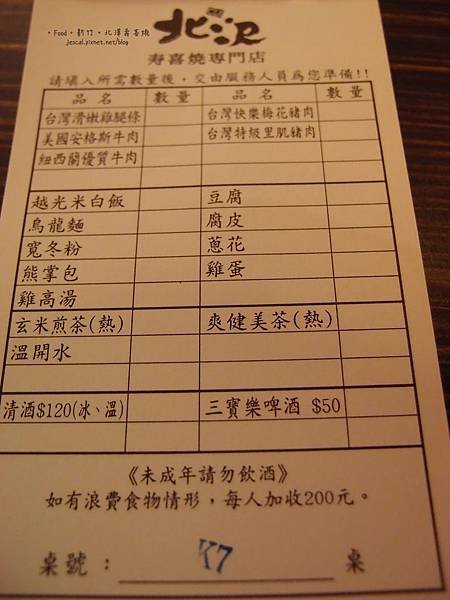 ・Food・新竹・北澤壽喜燒
jescal.pixnet.net/blog
北沢
寿喜燒専門店
請填入所需數量後，交由服務人員為您準備!!
品名 數量 品名 數量
台灣滑嫩雞腿條 台灣快樂梅花豬肉
美國安格斯牛肉 台灣特級里肌豬肉
紐西蘭優質牛肉
越光米白飯 豆腐
烏龍麵 腐皮
寬冬粉 蔥花
熊掌包 雞蛋
雞高湯
玄米煎茶(熱) 爽健美茶(熱)
溫開水
清酒$120(冰、溫) 三寶樂啤酒 $50
《未成年請勿飲酒》
如有浪費食物情形，每人加收200元。
桌號： K7 桌